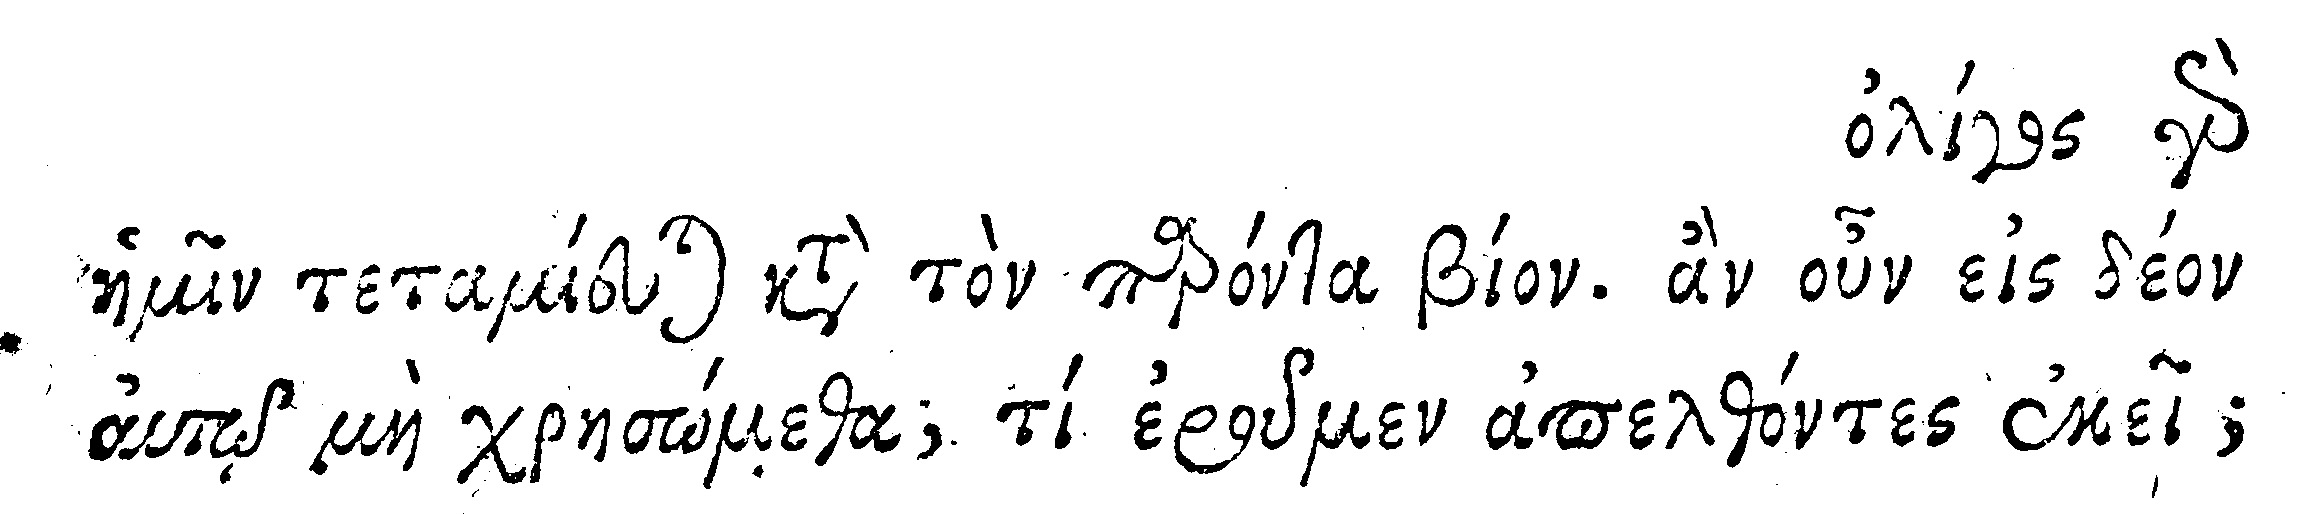 ὀλίγος γὰρ
ἡμῖν τεταμίευται κατὰ τὸν παρόντα βίον. ἂν οὖν εἰς δέον
αὐτῷ μὴ χρησώμεθα; τί ἐροῦμεν ἀπελθόντες ἐκεῖ;